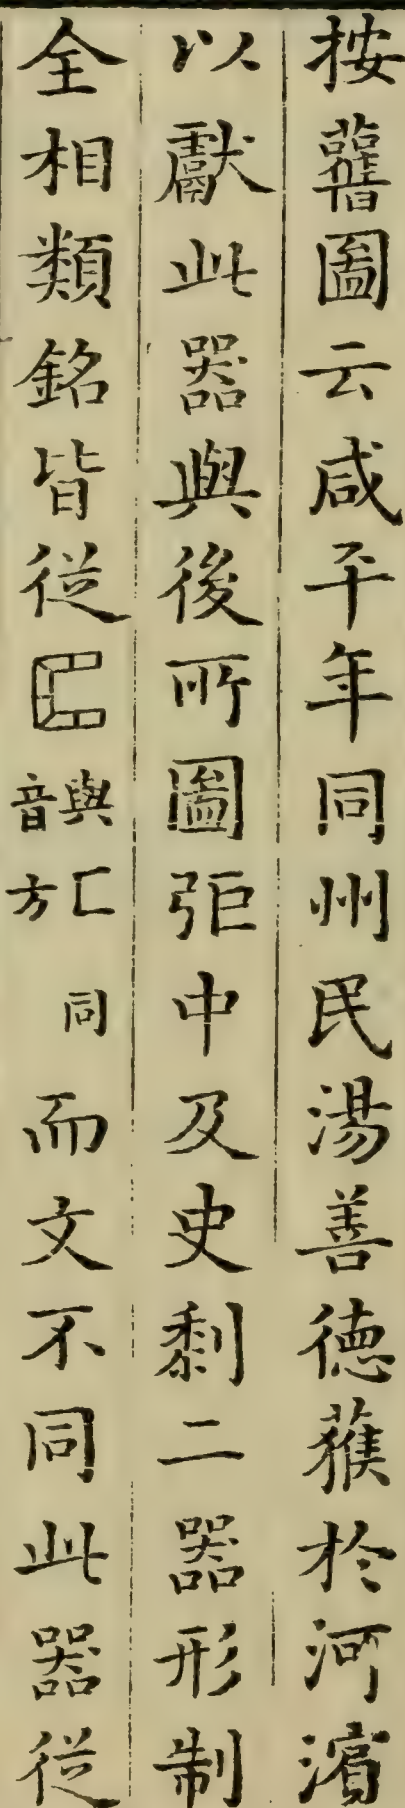 按舊圖云咸平年同州民湯善德獲於河濵
以獻此器與後所圖弡中及史剰二器形制
全相類銘皆從與匚同音方而文不同此器從